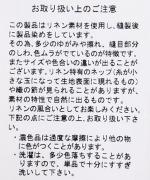 お取り扱い上のご注意
この製品はリネン素材を使用し、縫製後
に製品染めをしています。
その為、多少のゆがみや擦れ、縫目部分
のしわ、色ムラがでているのが特徴です。
またサイズや色合いの違いが出ることが
ございます。リネン特有のネップ(糸が小
さな玉になって生地表面に現れるもの)
や織の節が見られることがありますが、
素材の特性で自然に出るものです。
リネンの風合いとしてお楽しみください。
下記の点にご注意の上、お取り扱いくだ
さい。
・濃色品は過度な摩擦により他の物
に色がつくことがあります。
・洗濯は、多少色落ちすることがあり
ますので、単品で十分にすすぎ
洗いして下さい。